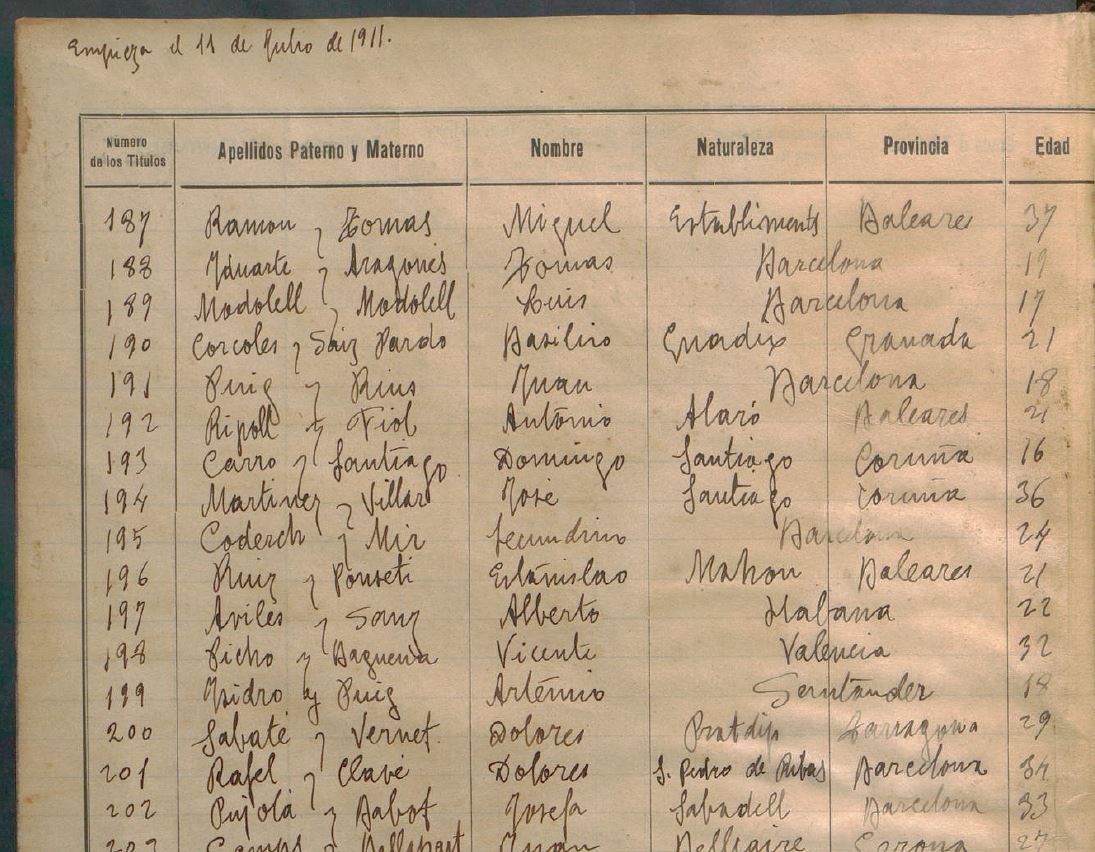 Empieza el 11 de Julio de 1911.
Número de los Titulos Apellidos Paterno y Materno Nombre Naturaleza Provincia Edad
187 Ramon y Tomas Miguel Establiments Baleares 37
188 Yduarte y Aragonés Tomas Barcelona 19
189 Modolell y Modolell Luis Barcelona 17
190 Corcoles y Saiz Pardo Basilio Guadix Granada 21
191 Puig y Rius Juan Barcelona 18
192 Ripoll y Fiol Antonio Alaró Baleares 21
193 Carro y Santiago Domingo Santiago Coruña 16
194 Martinez y Villar José Santiago Coruña 36
195 Coderch y Mir Secundino Barcelona 24
196 Ruiz y Ponseti Estanislao Mahon Baleares 21
197 Aviles y Sanz Alberto Habana 22
198 Picho y Baguena Vicente Valencia 32
199 Ysidro y Puig Artemio Santander 18
200 Sabaté y Vernet Dolores Pratdip Tarragona 29
201 Rafel y Clavé Dolores S. Pedro de Ribas Barcelona
202 Pujolá y Babot Josefa Sabadell Barcelona 33
203 Camps Juan Gerona 27